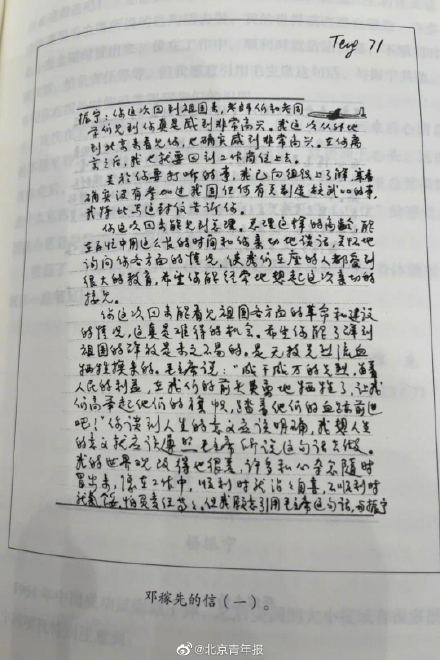 Teng 71
振宁:你这次回到祖国来,老师们和老同
学们见到你真是感到非常高兴。我这次从外地
到北京来看见你,也确实感到非常高兴。在你离
京之后,我也就要回到工作岗位上去。
关于你要打听的事,我已向组织上了解,寒春
确实没有参加过我国任何有关制造核武器的事,
我特地写这封信告诉你。
你这次回来能见到总理,总理这样的高龄,能
在百忙中用这么长的时间和你亲切地谈话,关怀地
询问你各方面的情况,使我们在座的人都受到
很大的教育,希望你能经常地想起这次亲切的
接见。
你这次回来能看见祖国各方面的革命和建设
的情况,这真是难得的机会。希望你能了解到
祖国的解放是来之不易的。是无数先烈流血
牺牲换来的。毛主席说:“成千成万的先烈,为着
人民的利益,在我们的前头英勇地牺牲了,让我
们高举起他们的旗帜,踏着他们的血迹前进
吧!”你谈到人生的意义应该明确,我想人生
的意义就应该遵照毛主席所说这句话去做。
我的世界观改得也很差,许多私心杂念随时
冒出来,像在工作中,顺利时就沾沾自喜,不顺利时
就气馁,怕负责任等等。但我愿意引用毛主席这句话,与振宁
邓稼先的信(一)。
@北京青年报